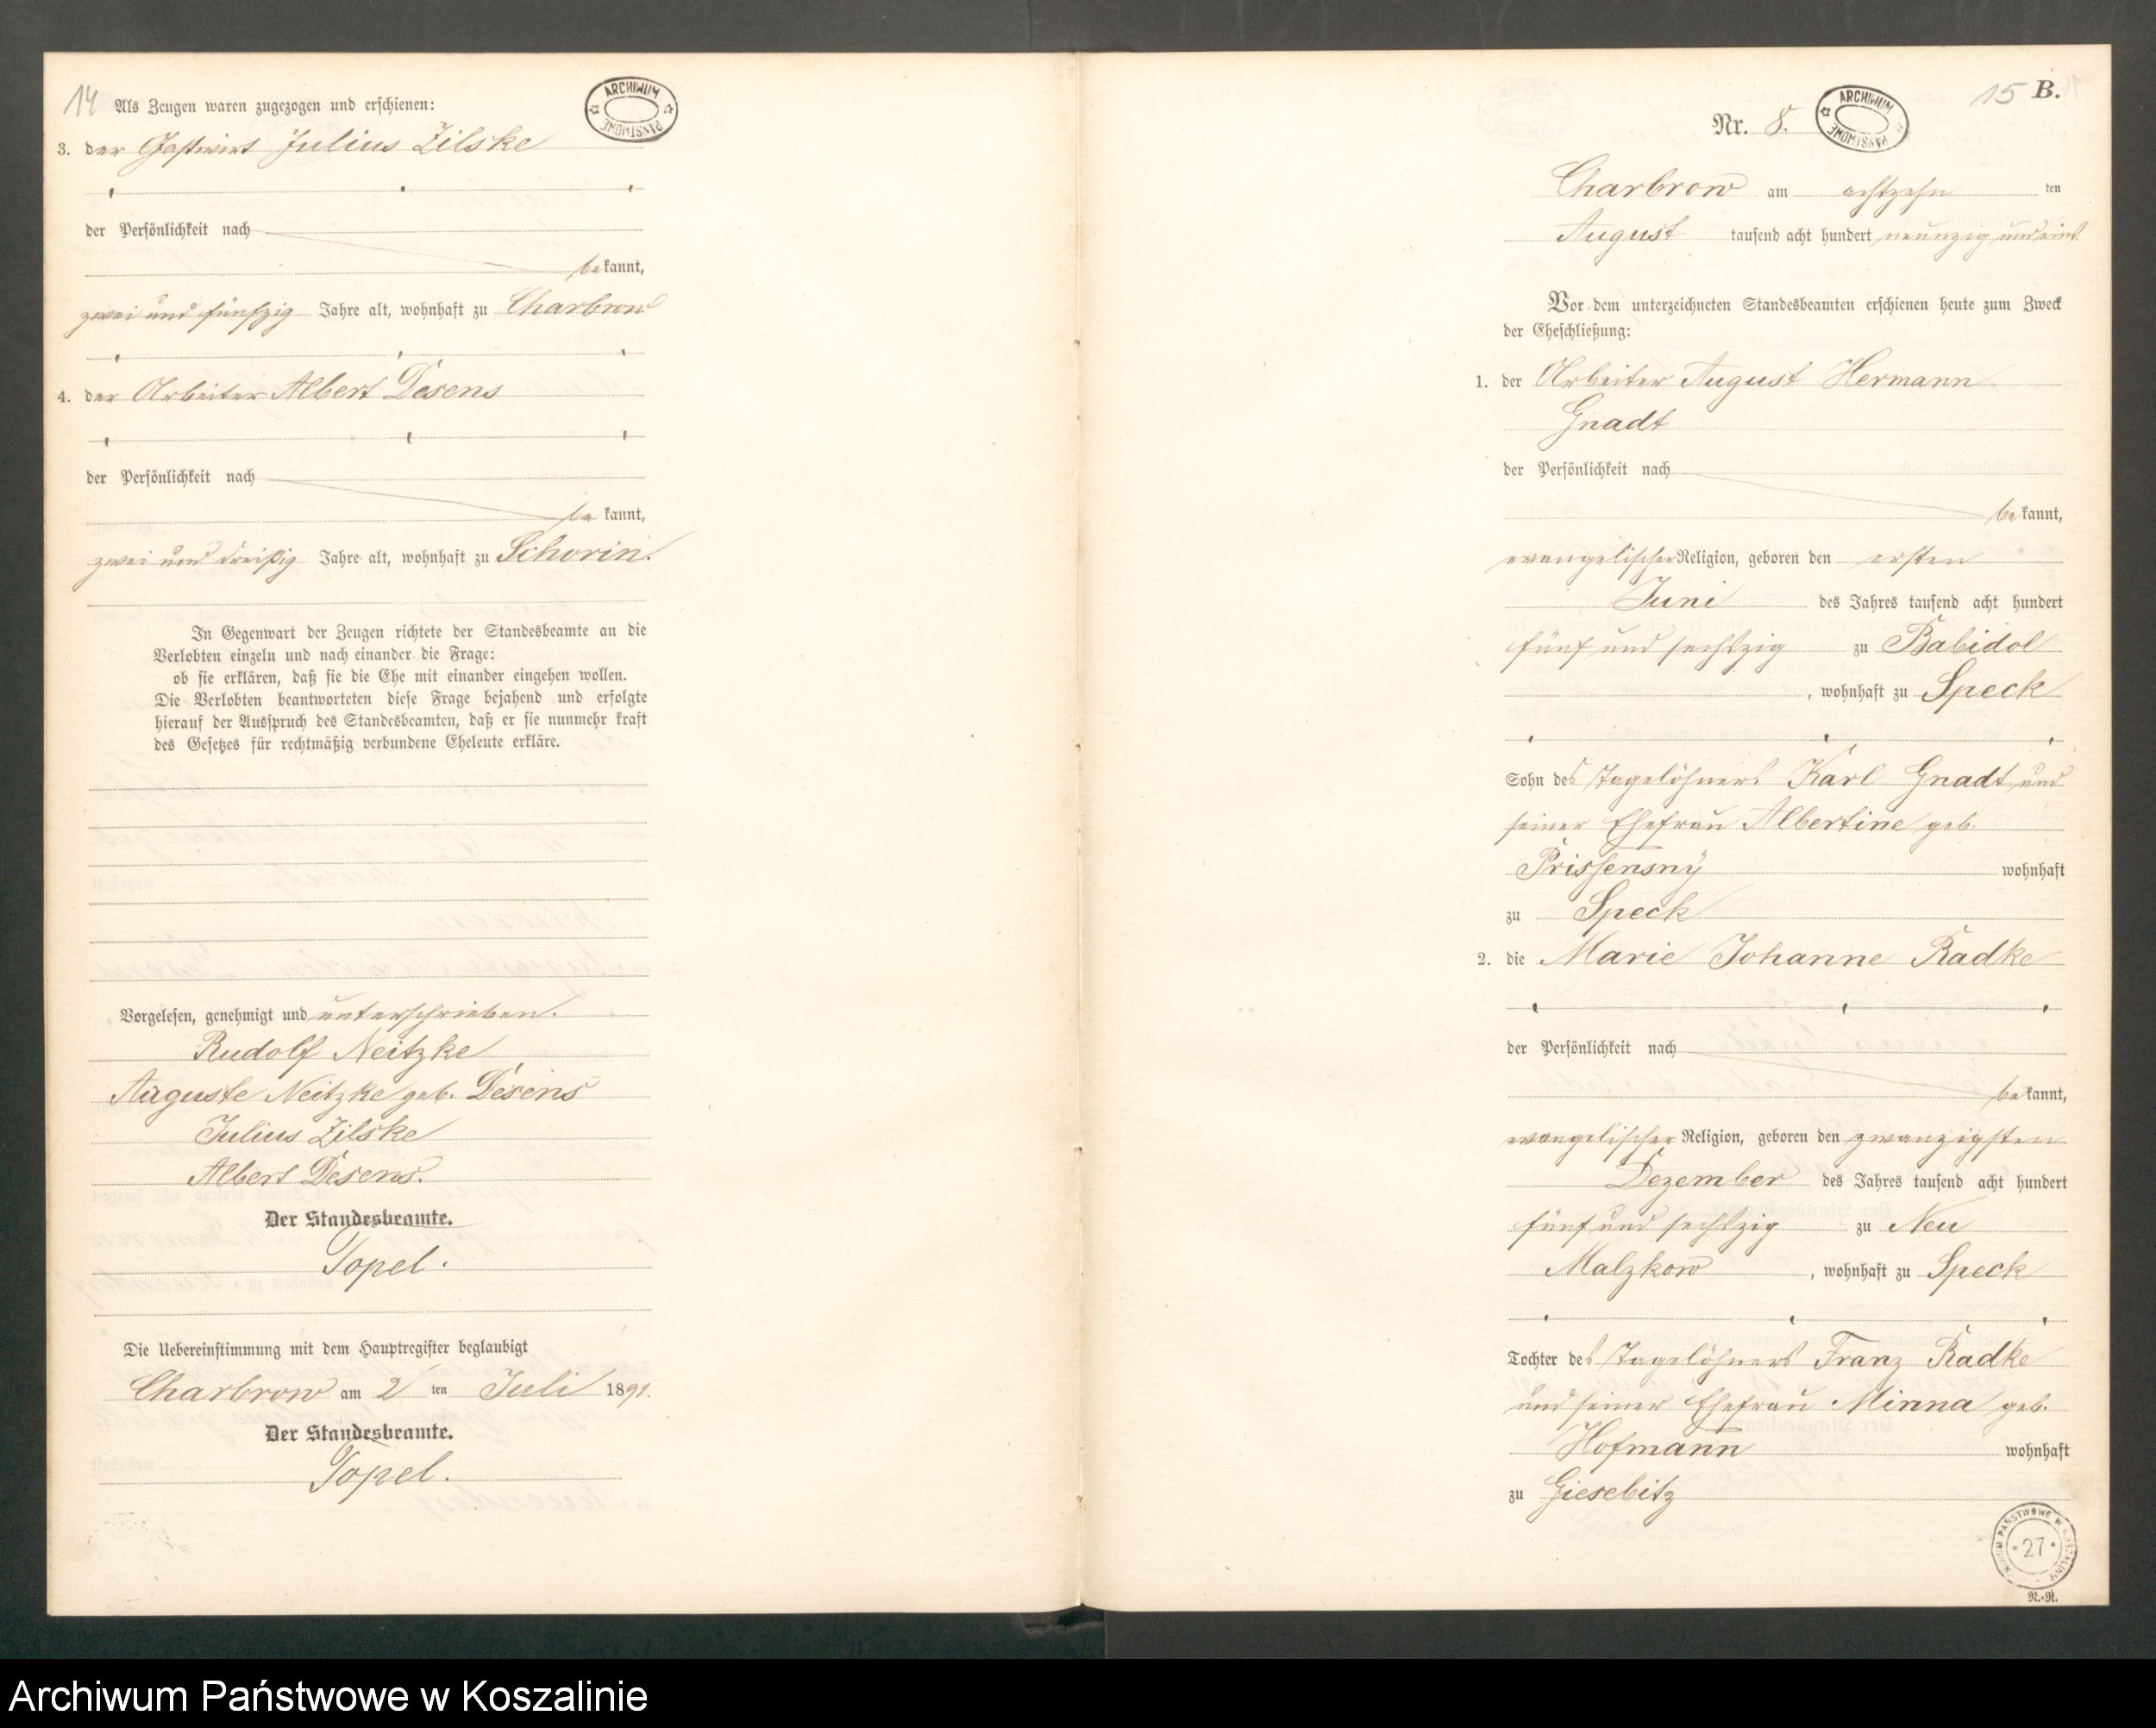 14
Als Zeugen waren zugezogen und erschienen:
ARCHIWUM PAŃSTWOWE
3. der Gastwirt Julius Zilske
der Persönlichkeit nach
bekannt,
zwei und fünfzig Jahre alt, wohnhaft zu Charbrow
4. der Arbeiter Albert Desens
der Persönlichkeit nach
bekannt,
zwei und dreißig Jahre alt, wohnhaft zu Schorin.
In Gegenwart der Zeugen richtete der Standesbeamte an die
Verlobten einzeln und nach einander die Frage:
ob sie erklären, daß sie die Ehe mit einander eingehen wollen.
Die Verlobten beantworteten diese Frage bejahend und erfolgte
hierauf der Ausspruch des Standesbeamten, daß er sie nunmehr kraft
des Gesetzes für rechtmäßig verbundene Eheleute erkläre.
Vorgelesen, genehmigt und unterschrieben.
Rudolf Neitzke
Auguste Neitzke geb. Desens
Julius Zilske
Albert Desens.
Der Standesbeamte.
Topel.
Die Uebereinstimmung mit dem Hauptregister beglaubigt
Charbrow am 2 ten Juli 1891.
Der Standesbeamte.
Topel.
15 B.
Nr. 8.
ARCHIWUM PAŃSTWOWE
Charbrow am achtzehn ten
August tausend acht hundert neunzig und eins.
Vor dem unterzeichneten Standesbeamten erschienen heute zum Zweck
der Eheschließung:
1. der Arbeiter August Hermann
Gnadt
der Persönlichkeit nach
bekannt,
evangelischer Religion, geboren den ersten
Juni des Jahres tausend acht hundert
fünf und sechszig zu Babidol
, wohnhaft zu Speck
Sohn des Tagelöhners Karl Gnadt und
seiner Ehefrau Albertine geb.
Prissensny wohnhaft
zu Speck
2. die Marie Johanne Radke
der Persönlichkeit nach
bekannt,
evangelischer Religion, geboren den zwanzigsten
Dezember des Jahres tausend acht hundert
fünf und sechszig zu Neu
Malzkow , wohnhaft zu Speck
Tochter des Tagelöhners Franz Radke
und seiner Ehefrau Minna geb.
Hofmann wohnhaft
zu Giesebitz
ARCHIWUM PAŃSTWOWE W KOSZALINIE
* 27 *
N.-N.
Archiwum Państwowe w Koszalinie